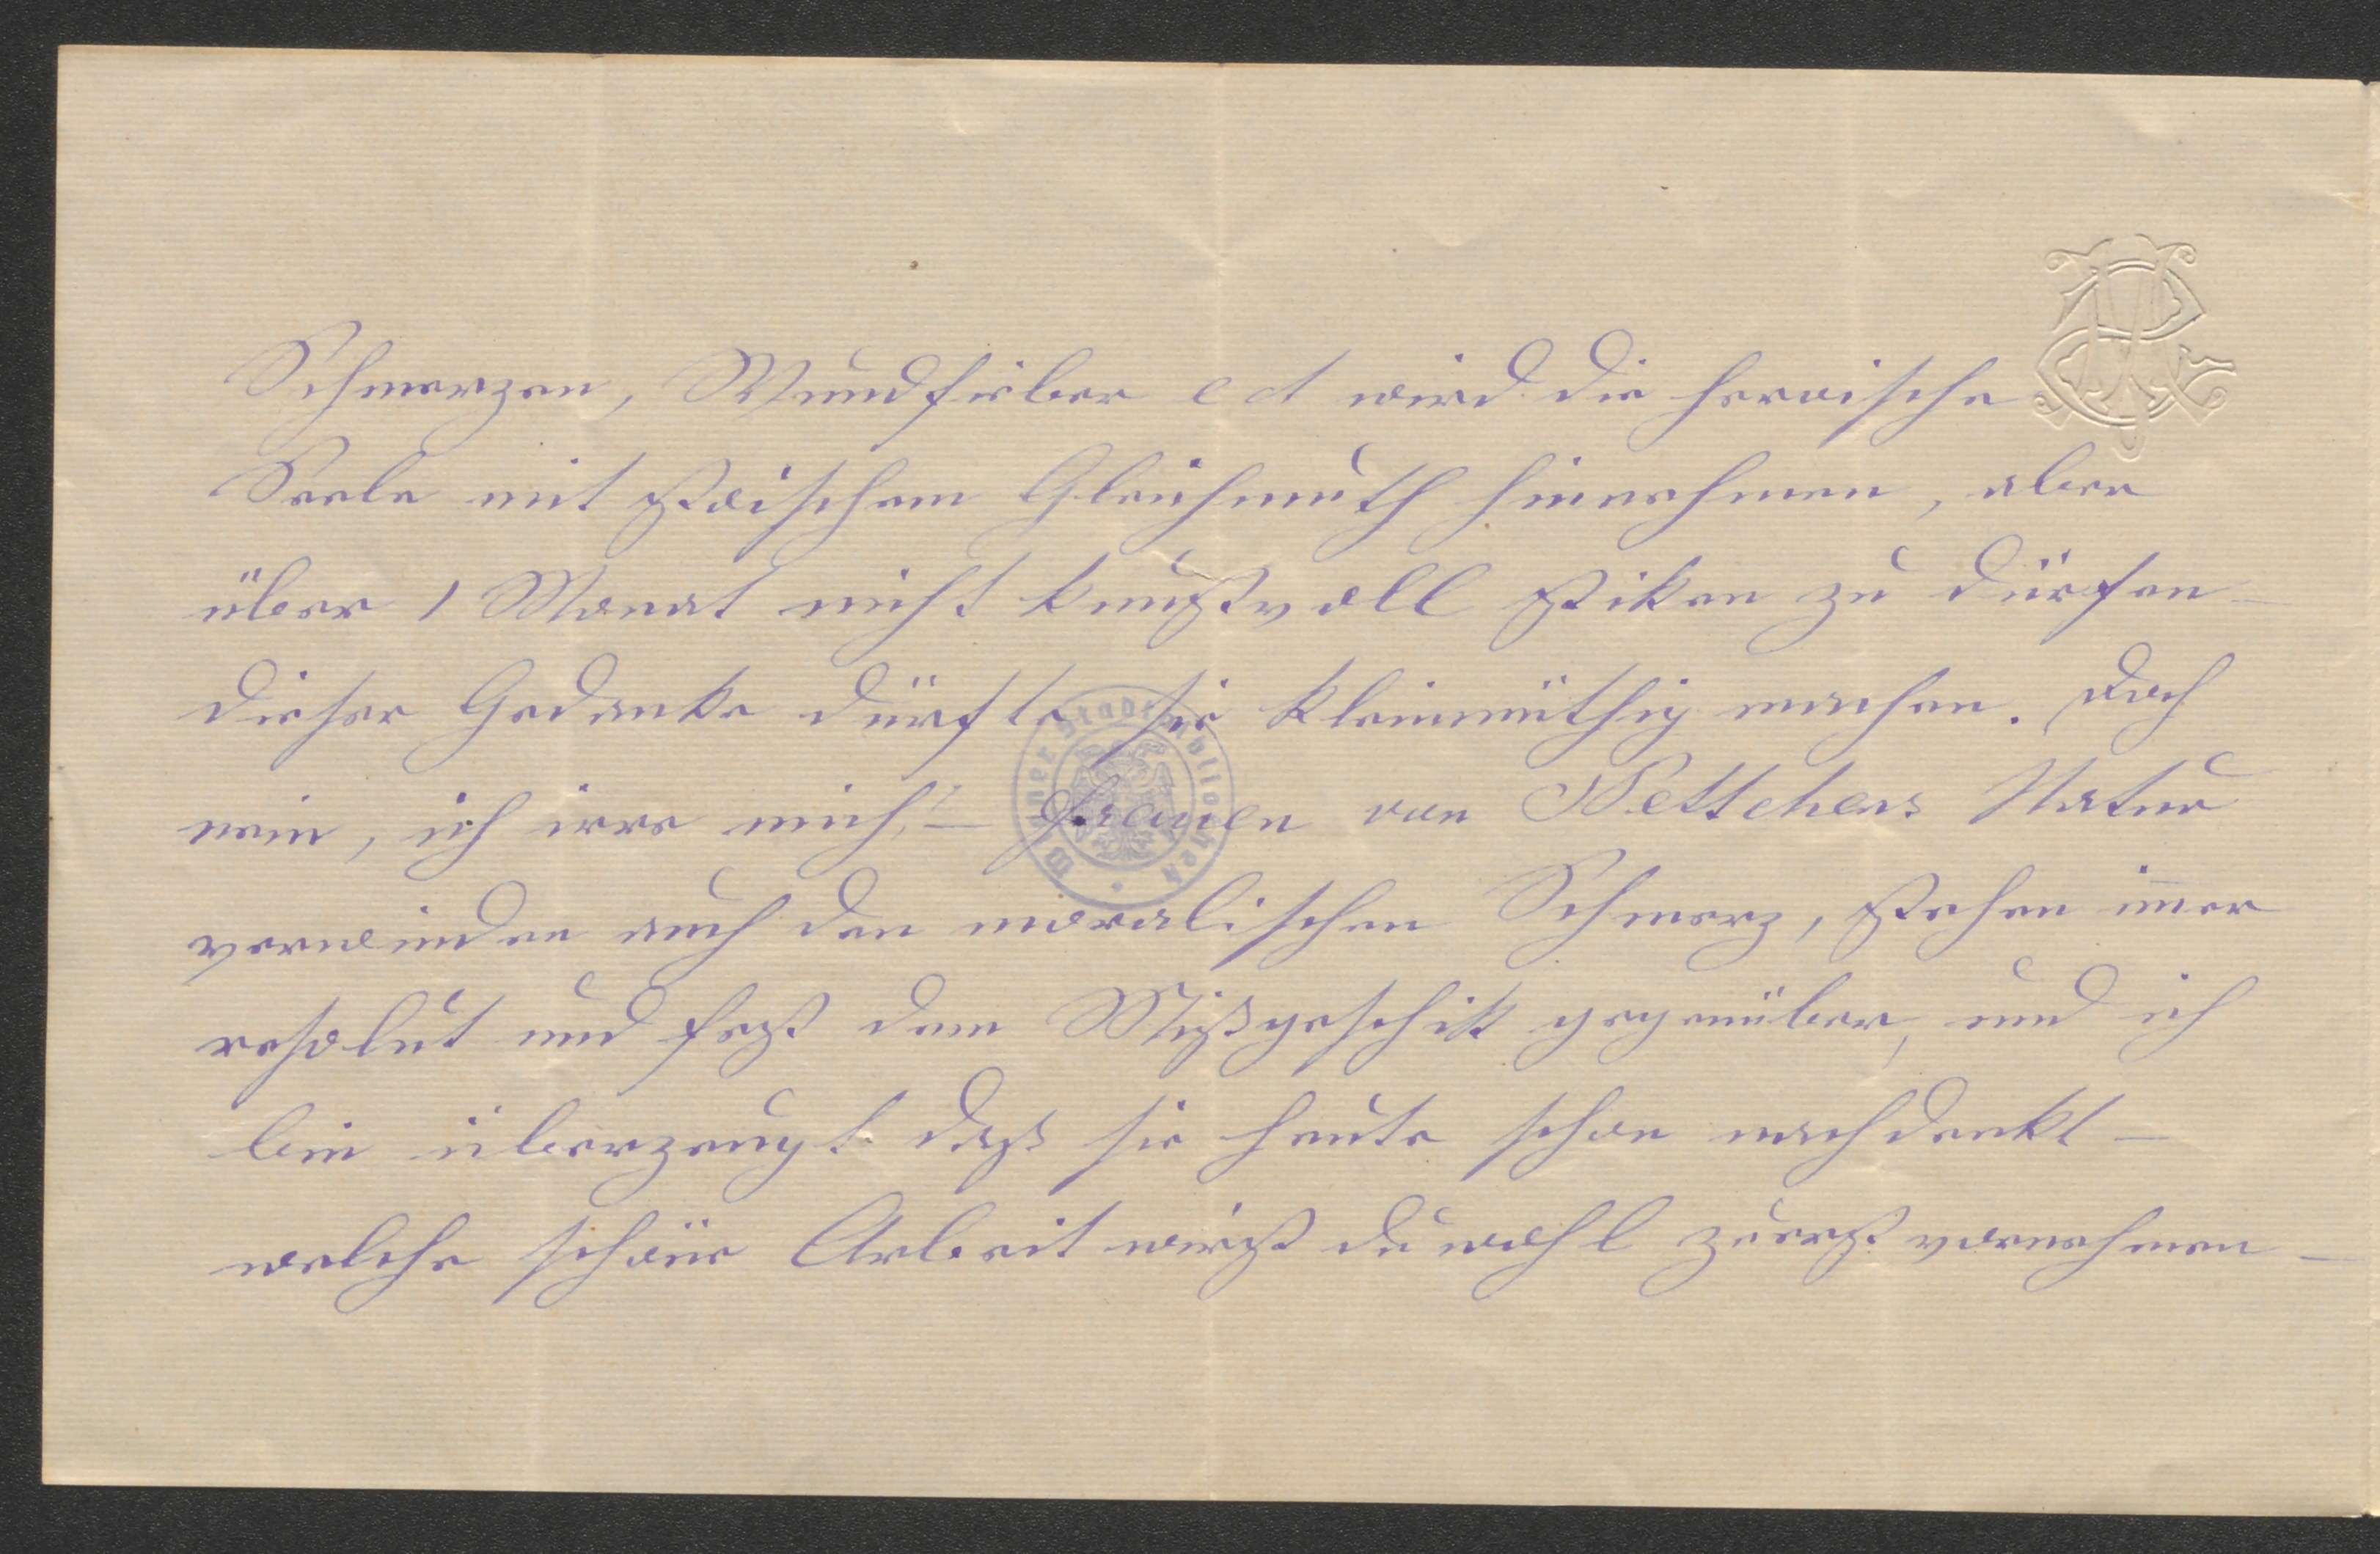 Schmerzen, Wundfieber ect wird die heroische
Seele mit stoischem Gleichmuth hinnehmen, aber
über 1 Monat nicht kunstvoll stiken zu dürfen –
dieser Gedanke dürfte sie kleinmüthig machen. Doch
nein, ich irre mich! – Frauen von Nettchens Natur
verwinden auch den moralischen Schmerz, stehen im̅er
resolut und fest dem Mißgeschik gegenüber, und ich
bin überzeugt dass sie heute schon nachdenkt –
welche schöne Arbeit wirst du wohl zuerst vornehmen –
Wiener Stadtbibliothek